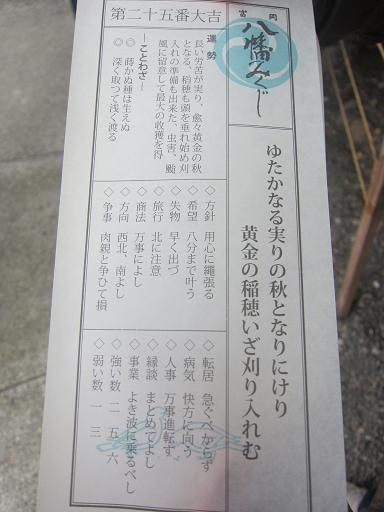 富岡
八幡みくじ
ゆたかなる実りの秋となりにけり
黄金の稲穂いざ刈り入れむ
第二十五番大吉
運勢
長い労苦が実り、愈々黄金の秋
となる、稲穂も頭を垂れ始め刈
入れの準備も出来た、虫害、颱
風に留意して最大の収穫を得
―ことわざ―
◎蒔かぬ種は生えぬ
◎深く取つて浅く渡る
◇方針 用心に縄張る
◇希望 八分まで叶う
◇失物 早く出づ
◇旅行 北に注意
◇商法 万事によし
◇方向 西北、南よし
◇争事 肉親と争ひて損
◇転居 急ぐべからず
◇病気 快方に向う
◇人事 万事進転す
◇縁談 まとめてよし
◇事業 よき波に乗るべし
◇強い数 二 五 六
◇弱い数 一 三